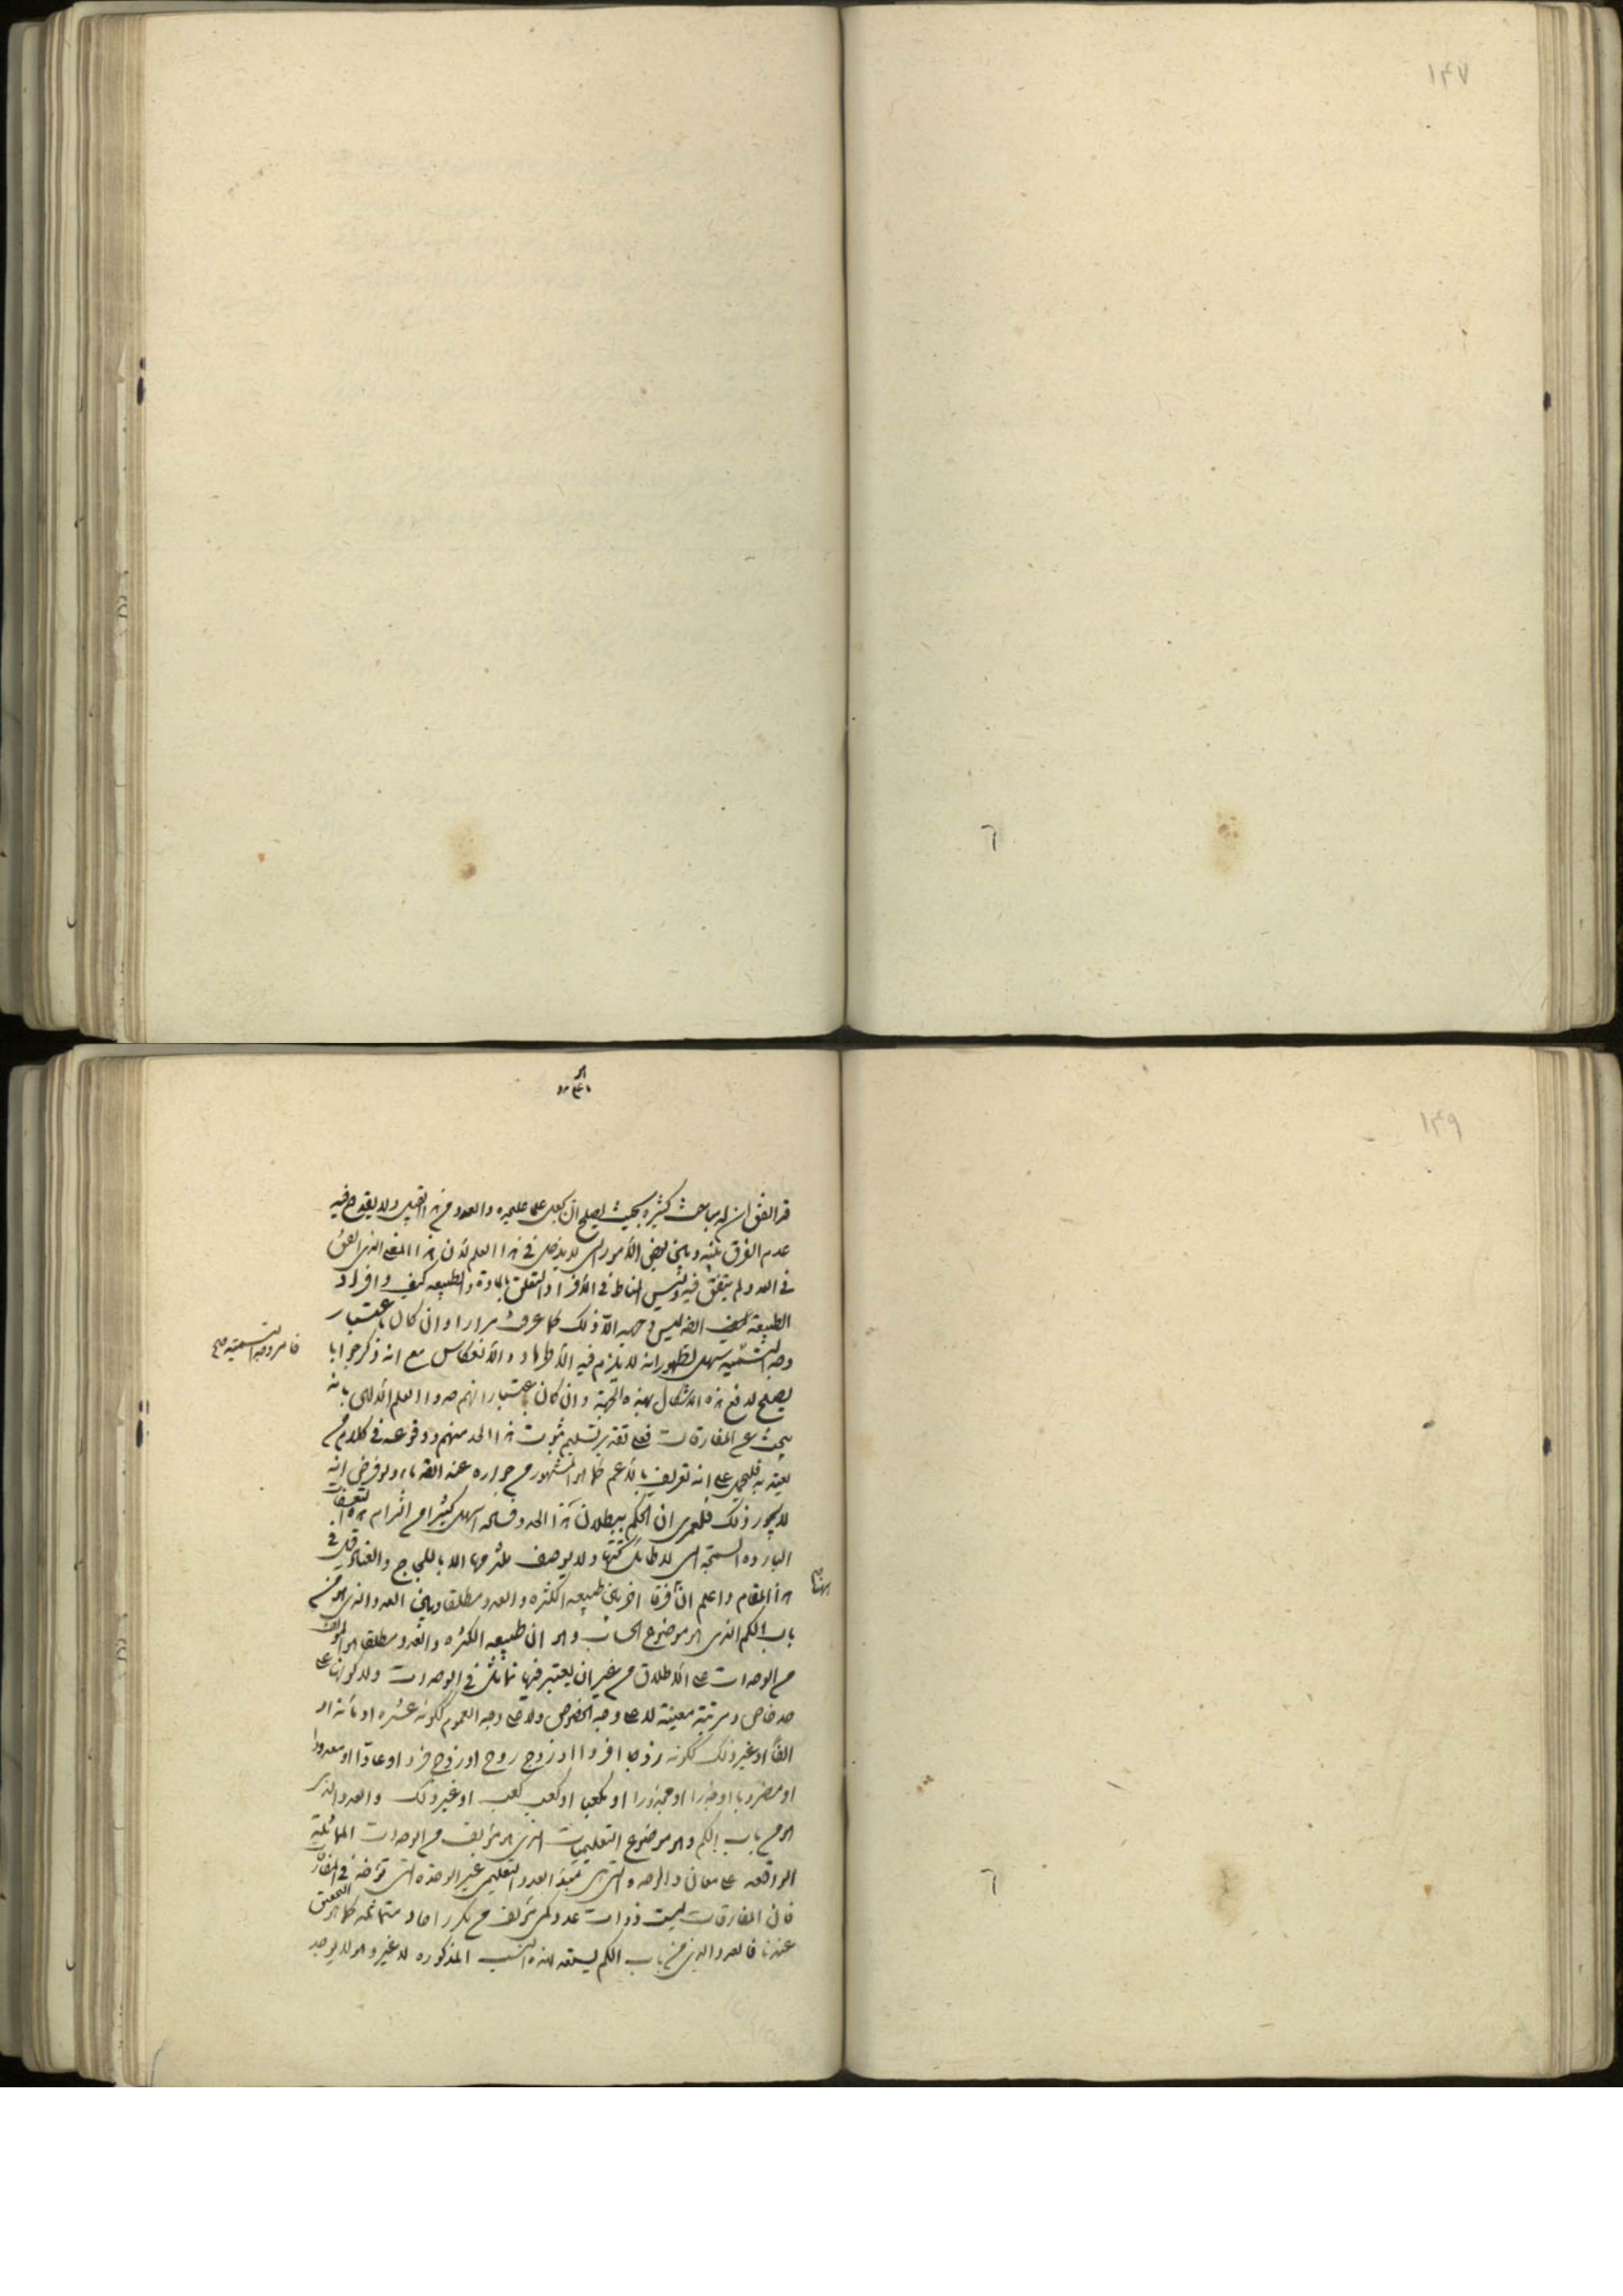 ۱۴۷
٦
۱۴۹
قد اتفق ان له مباحث كثيرة بحيث يصلح ان يجعل علما عليحده والعدد من هذا القبيل ولا يقدح فيه
عدم الفرق بينه وبين بعض الأمور التى لا يدخل فى هذا العلم لأن هذا المعنى الذى اتفق
فى العدد لم يتفق فيه وليس المناط فى الأفراد التعلق بالمادة والطبيعه كيف وافراد
الطبيعة ايضا ليس من جهة الا ذلك كما عرفت مرارا وان كان باعتبار
وجه التسمية سهل لظهور انه لا يلزم فيه الأطراد والأنعكاس مع انه ذكر جوابا
فأمر وجه التسمية صح
يصلح لدفع هذه الاشكال بهذه الجهة وان كان باعتبار انهم حدوا العلم الالهى بانه
يبحث عن المفارقات فعلى تقدير تسليم ثبوت هذا الحد منهم ووقوعه فى كلام من
يعتد به فليحمل على انه تعريف بالأعم كما هو المشهور من جوازه عند القدماء ولو فرض انه
لا يجوز ذلك فلعمرى ان الحكم ببطلان هذا الحد وفساده اسهل كثيرا من التزام هذه التعسفات
الباردة السمجة التى لا طائل تحتها ولا يوصف ملتزمها الا باللجاج والعناد قال فى
هذا المقام واعلم ان فرقا اخر بين طبيعه الكثره والعدد مطلقا وبين العدد الذى هو من
باب الكم الذى هو موضوع الحساب وهو ان طبيعه الكثره والعدد مطلقا هو المؤلف
من الوحدات على الاطلاق من غير ان يعتبر فيها تماثل فى الوحدات ولا كونها على
حد خاص ومرتبة معينة لا على وجه الخصوص ولا على وجه العموم ككونه عشره او مائة او
الفا او غير ذلك ككونه زوجا او فردا او زوج زوج او زوج فرد او عادا او معدودا
او مضروبا او جذرا او مجذورا او مكعبا او كعب كعب او غير ذلك والعدد الذى
هو من باب الكم وهو موضوع التعليميات الذى هو مؤلف من الوحدات المماثلة
الواقعه على معان والوحده التى هى مبدء العدد التعليمى غير الوحدة التى توخذ فى المفارقات
فان المفارقات ليست ذوات عدد كمى مؤلف من تكرر احاد متماثله كما هو التحقيق
عندنا فالعدد الذى من باب الكم يستعد لهذه النسب المذكوره لا غير وهو لا يوجد
٦